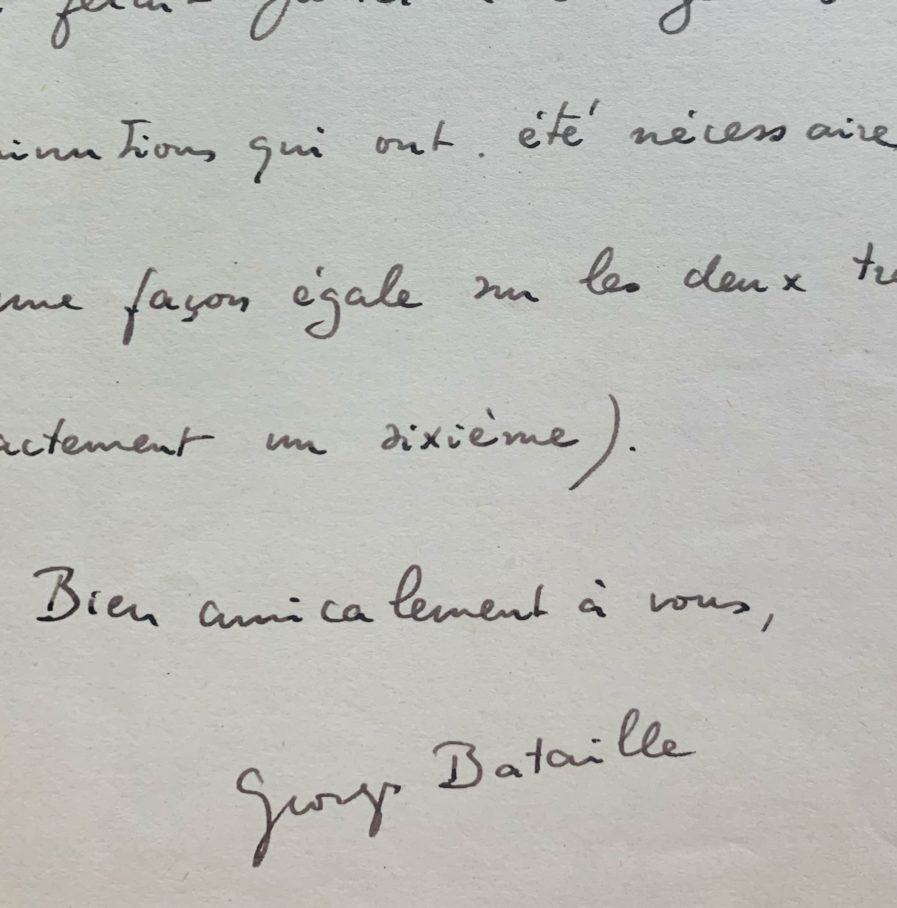 inutions qui ont été nécessaire
une façon égale sur les deux tr
actement un sixième).
Bien amicalement à vous,
Georges Bataille